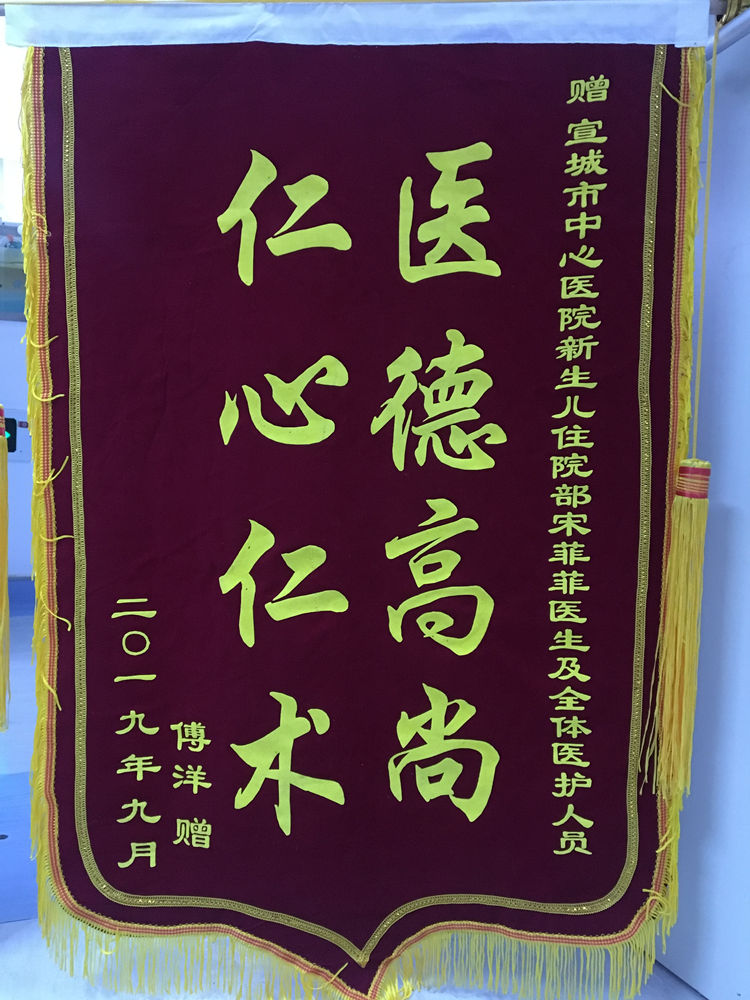 赠 宣城市中心医院新生儿住院部宋菲菲医生及全体医护人员
医德高尚
仁心仁术
傅洋 赠
二〇一九年九月